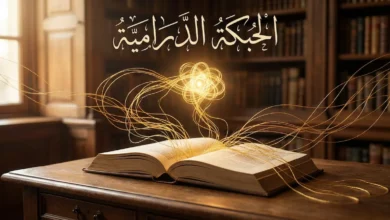 الحُبكَةُ الدَّرَامِيَّةُ